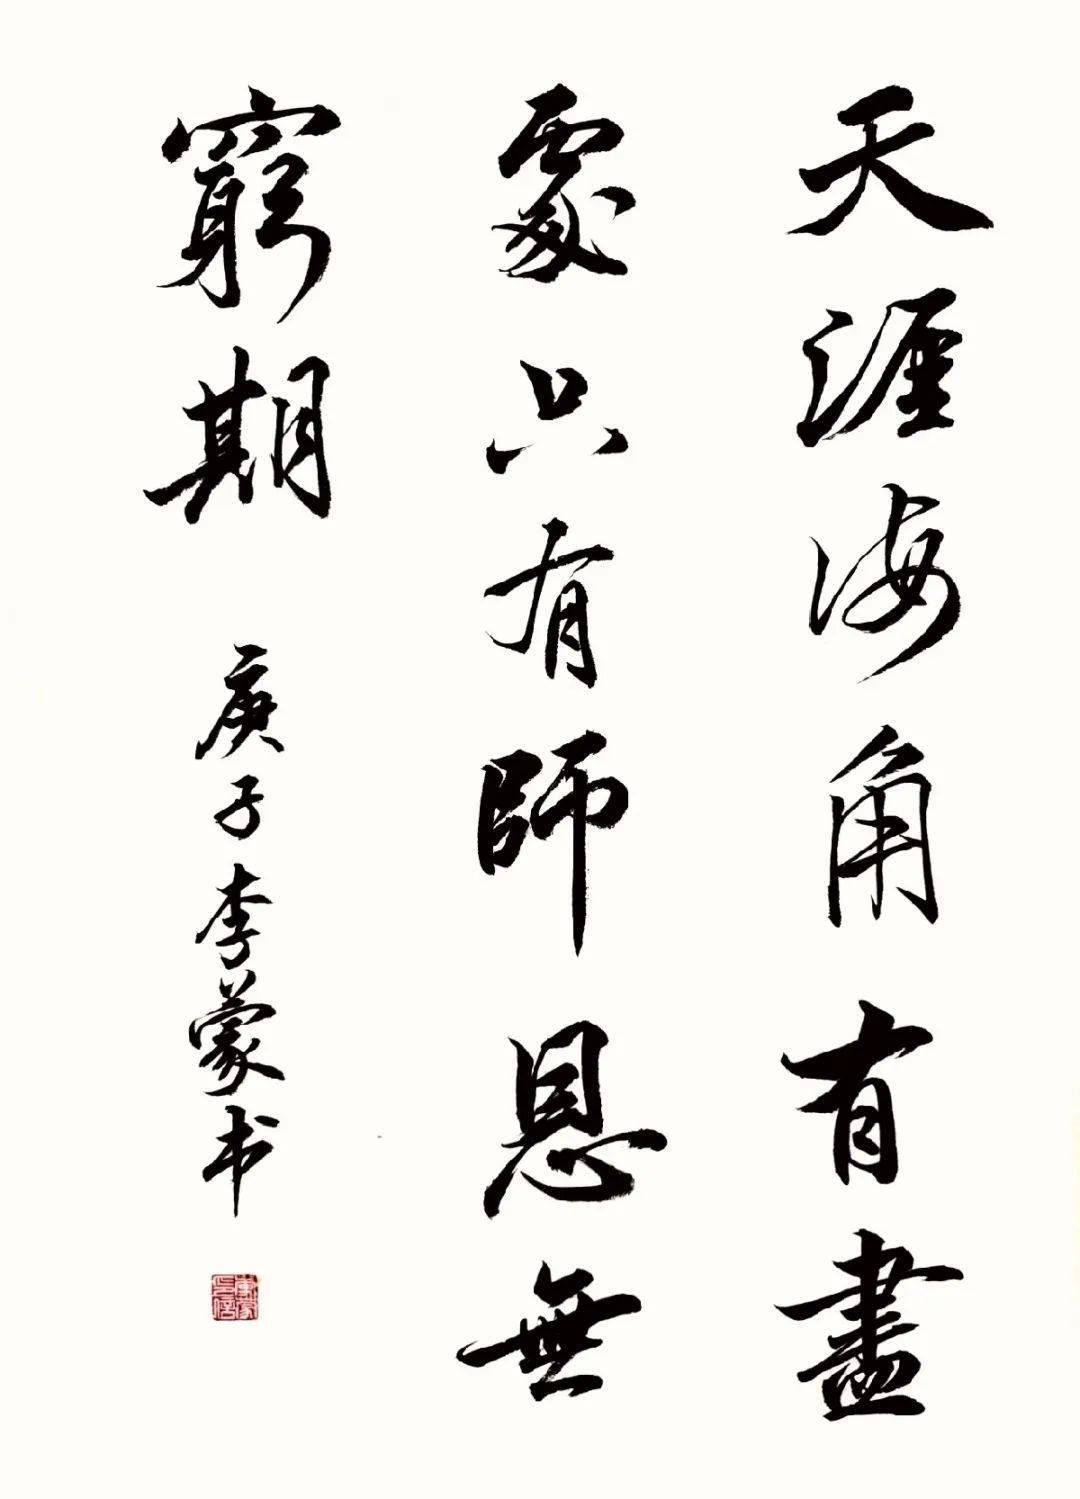 天涯海角有盡
處只有師恩無
窮期
庚子李蒙书